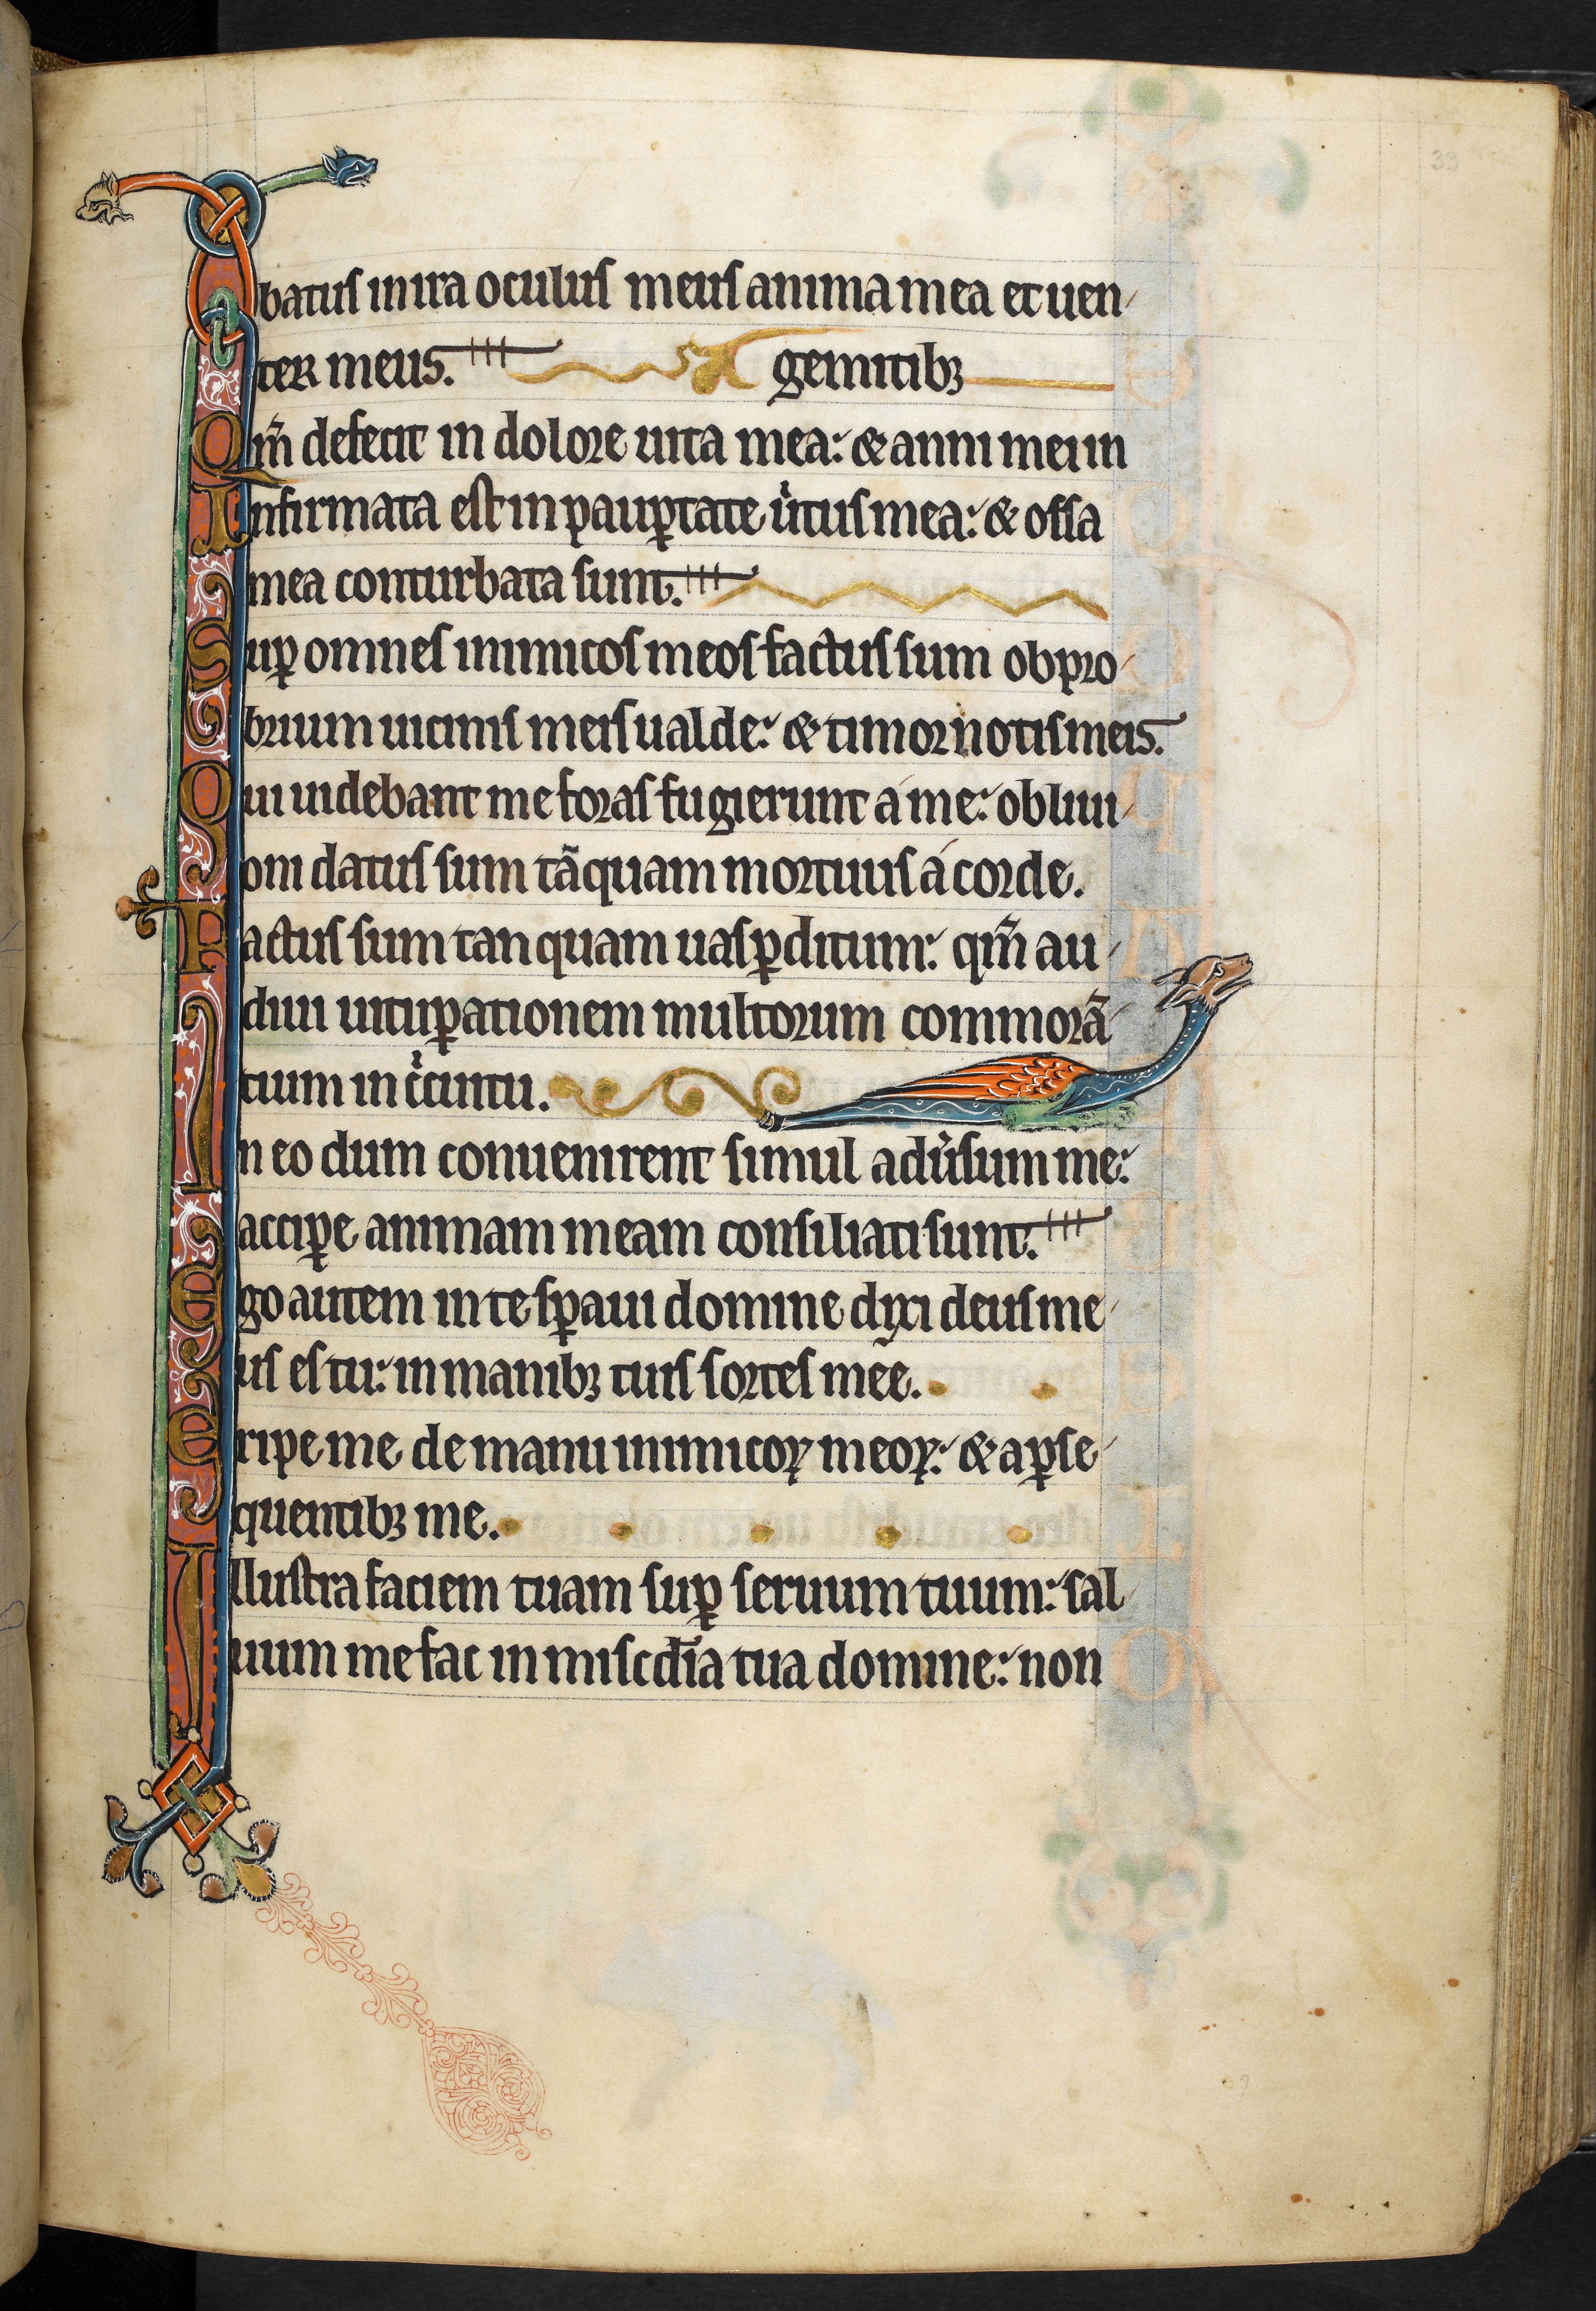 39
batus in ira oculus meus anima mea et uen/
ter meus. gemitibꝫ
Qm̃ defecit in dolore uita mea: & anni mei in
Infirmata est in paup̱tate ůtus mea: & ossa
mea conturbata sunt.
Sup̱ omnes inimicos meos factus sum obpro/
brium uicinis meis ualde: & timor notis meis.
Qui uidebant me foras fugierunt á me: obliui/
oni datus sum tãquam mortuus á corde.
Factus sum tanquam uas p̱ditum: qm̃ au/
diui uitup̱ationem multorum commorã/
tium in ċcuitu.
In eo dum conuenirent simul adůsum me:
accip̱e animam meam consiliati sunt.
Ego autem in te sp̱aui domine dixi deus me/
us es tu: in manibꝫ tuis sortes meę.
Eripe me de manu inimicoꝝ meoꝝ: & a p̱se/
quentibꝫ me.
Illustra faciem tuam sup̱ seruum tuum: sal/
uum me fac in miscd̄ia tua domine: non